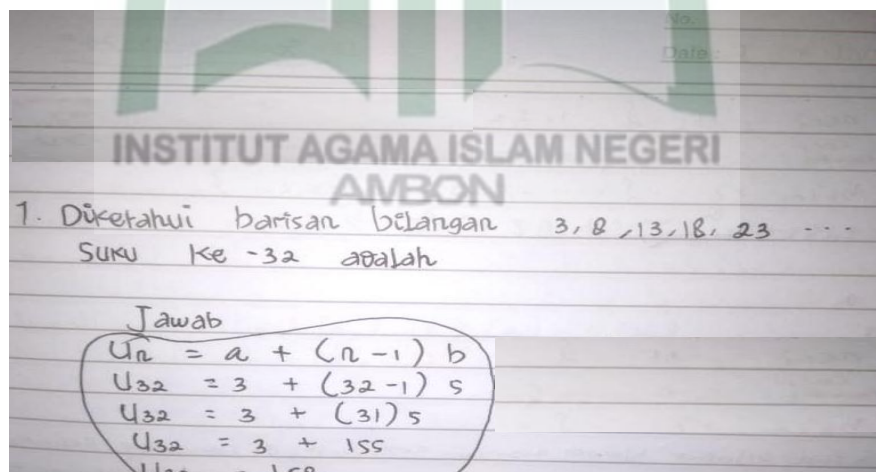 No.
Date:
INSTITUT AGAMA ISLAM NEGERI
AMBON
1. Diketahui barisan bilangan 3, 8, 13, 18, 23 ...
Suku ke -32 adalah
Jawab
Un = a + (n - 1) b
U32 = 3 + (32 - 1) 5
U32 = 3 + (31) 5
U32 = 3 + 155